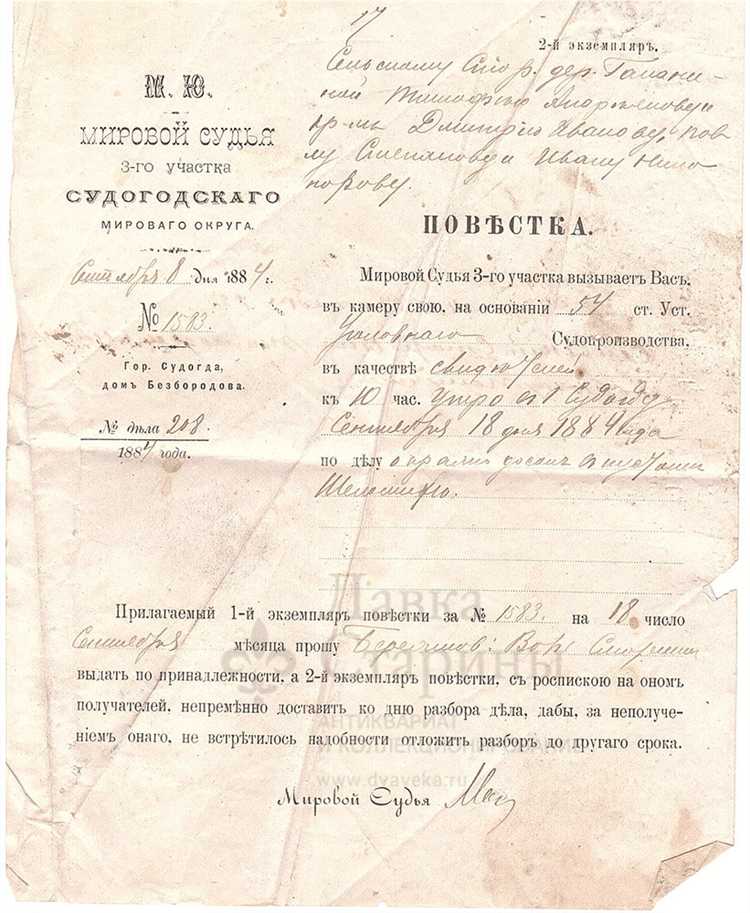 17
2-й экземпляръ.
Сельскому Стар. дер.
Тимофею
кр-мъ Дмитрію Иванову, Пав
лу Степанову и Ивану Ники
форову.
М. Ю.
МИРОВОЙ СУДЬЯ
3-го участка
СУДОГОДСКАГО
МИРОВАГО ОКРУГА.
Сентября 8 дня 1884 г.
№ 1583.
Гор. Судогда,
домъ Безбородова.
№ дѣла 208.
1884 года.
ПОВѢСТКА.
Мировой Судья 3-го участка вызываетъ Васъ,
въ камеру свою, на основаніи 54 ст. Уст.
Уголовнаго Судопроизводства,
въ качествѣ свидѣтелей
къ 10 час. утра въ г. Судогду
Сентября 18 дня 1884 года
по дѣлу о кражѣ досокъ въ пустоши
Прилагаемый 1-й экземпляръ повѣстки за № 1583. на 18 число
Сентября мѣсяца прошу
выдать по принадлежности, а 2-й экземпляръ повѣстки, съ роспискою на ономъ
получателей, непремѣнно доставить ко дню разбора дѣла, дабы, за неполуче-
ніемъ онаго, не встрѣтилось надобности отложить разборъ до другаго срока.
Мировой Судья
Лавка
Старины
АНТИКВАРИАТ
И КОЛЛЕКЦИОНИРОВАНИЕ
www.dvaveka.ru